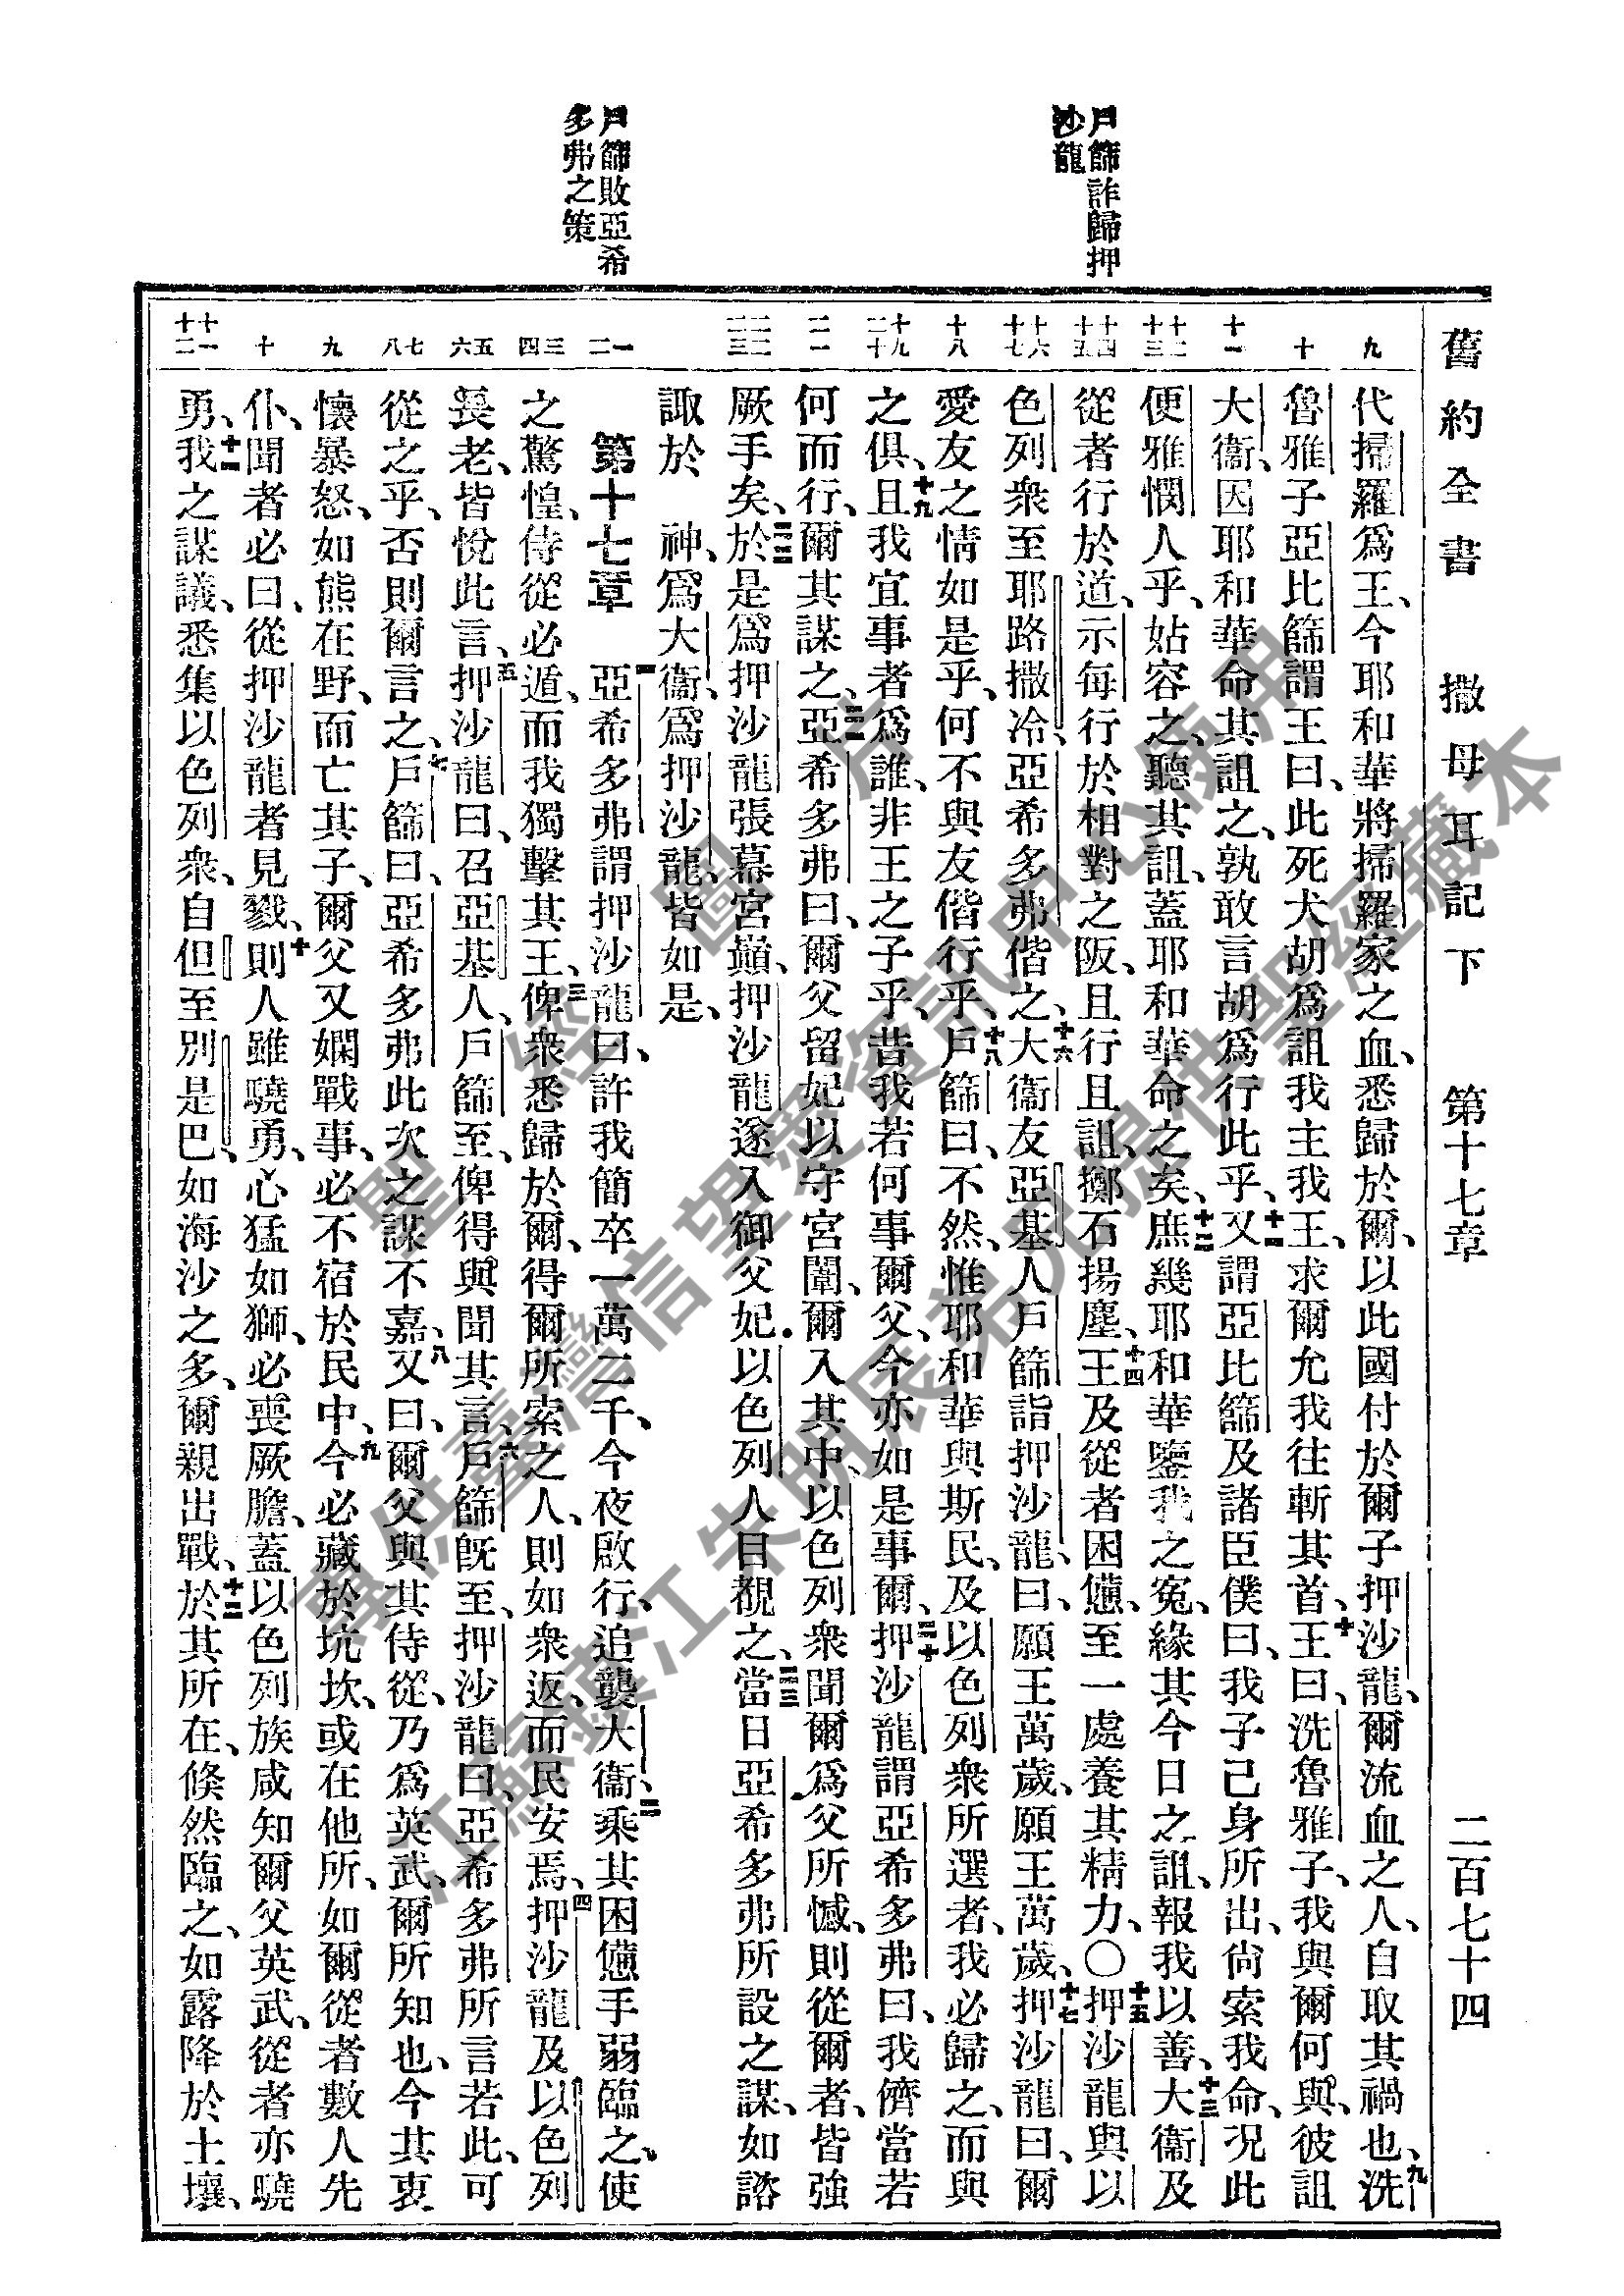 戶篩詐歸押
沙龍
戶篩敗亞希
多弗之策
舊約全書 撒母耳記下 第十七章 二百七十四
九 十 十一 十二 十三 十四 十五 十六 十七 十八 十九 二十 二一 二二 二三 一 二 三 四 五 六 七 八 九 十 十一 十二
代掃羅爲王、今耶和華將掃羅家之血、悉歸於爾、以此國付於爾子押沙龍、爾流血之人、自取其禍也、九洗
魯雅子亞比篩謂王曰、此死犬胡爲詛我主我王、求爾允我往斬其首、十王曰、洗魯雅子、我與爾何與、彼詛
大衞、因耶和華命其詛之、孰敢言胡爲行此乎、十一又謂亞比篩及諸臣僕曰、我子己身所出、尙索我命、況此
便雅憫人乎、姑容之、聽其詛、蓋耶和華命之矣、十二庶幾耶和華鑒我之寃、緣其今日之詛、報我以善、十三大衞及
從者行於道、示每行於相對之阪、且行且詛、擲石揚塵、十四王及從者困憊、至一處養其精力、〇十五押沙龍與以
色列衆至耶路撒冷、亞希多弗偕之、十六大衞友亞基人戶篩詣押沙龍、曰、願王萬歲、願王萬歲、十七押沙龍曰、爾
愛友之情如是乎、何不與友偕行乎、十八戶篩曰、不然、惟耶和華與斯民、及以色列衆所選者、我必歸之、而與
之俱、十九且我宜事者爲誰、非王之子乎、昔我若何事爾父、今亦如是事爾、二十押沙龍謂亞希多弗曰、我儕當若
何而行、爾其謀之、二一亞希多弗曰、爾父留妃以守宮闈、爾入其中、以色列衆聞爾爲父所憾、則從爾者、皆強
厥手矣、二二於是爲押沙龍張幕宮巔、押沙龍遂入御父妃、以色列人目覩之、二三當日亞希多弗所設之謀、如諮
諏於 神、爲大衞、爲押沙龍、皆如是、
第十七章 一亞希多弗謂押沙龍曰、許我簡卒一萬二千、今夜啟行、追襲大衞、二乘其困憊手弱臨之、使
之驚惶、侍從必遁、而我獨擊其王、三俾衆悉歸於爾、得爾所索之人、則如衆返、而民安焉、四押沙龍及以色列
長老、皆悅此言、五押沙龍曰、召亞基人戶篩至、俾得與聞其言、六戶篩旣至、押沙龍曰、亞希多弗所言若此、可
從之乎、否則爾言之、七戶篩曰、亞希多弗此次之謀不嘉、八又曰、爾父與其侍從、乃爲英武、爾所知也、今其衷
懷暴怒、如熊在野、而亡其子、爾父又嫻戰事、必不宿於民中、九今必藏於坑坎、或在他所、如爾從者數人先
仆、聞者必曰、從押沙龍者見戮、十則人雖驍勇、心猛如獅、必喪厥膽、蓋以色列族咸知爾父英武、從者亦驍
勇、十一我之謀議、悉集以色列衆、自但至別是巴、如海沙之多、爾親出戰、十二於其所在、倐然臨之、如露降於土壤、